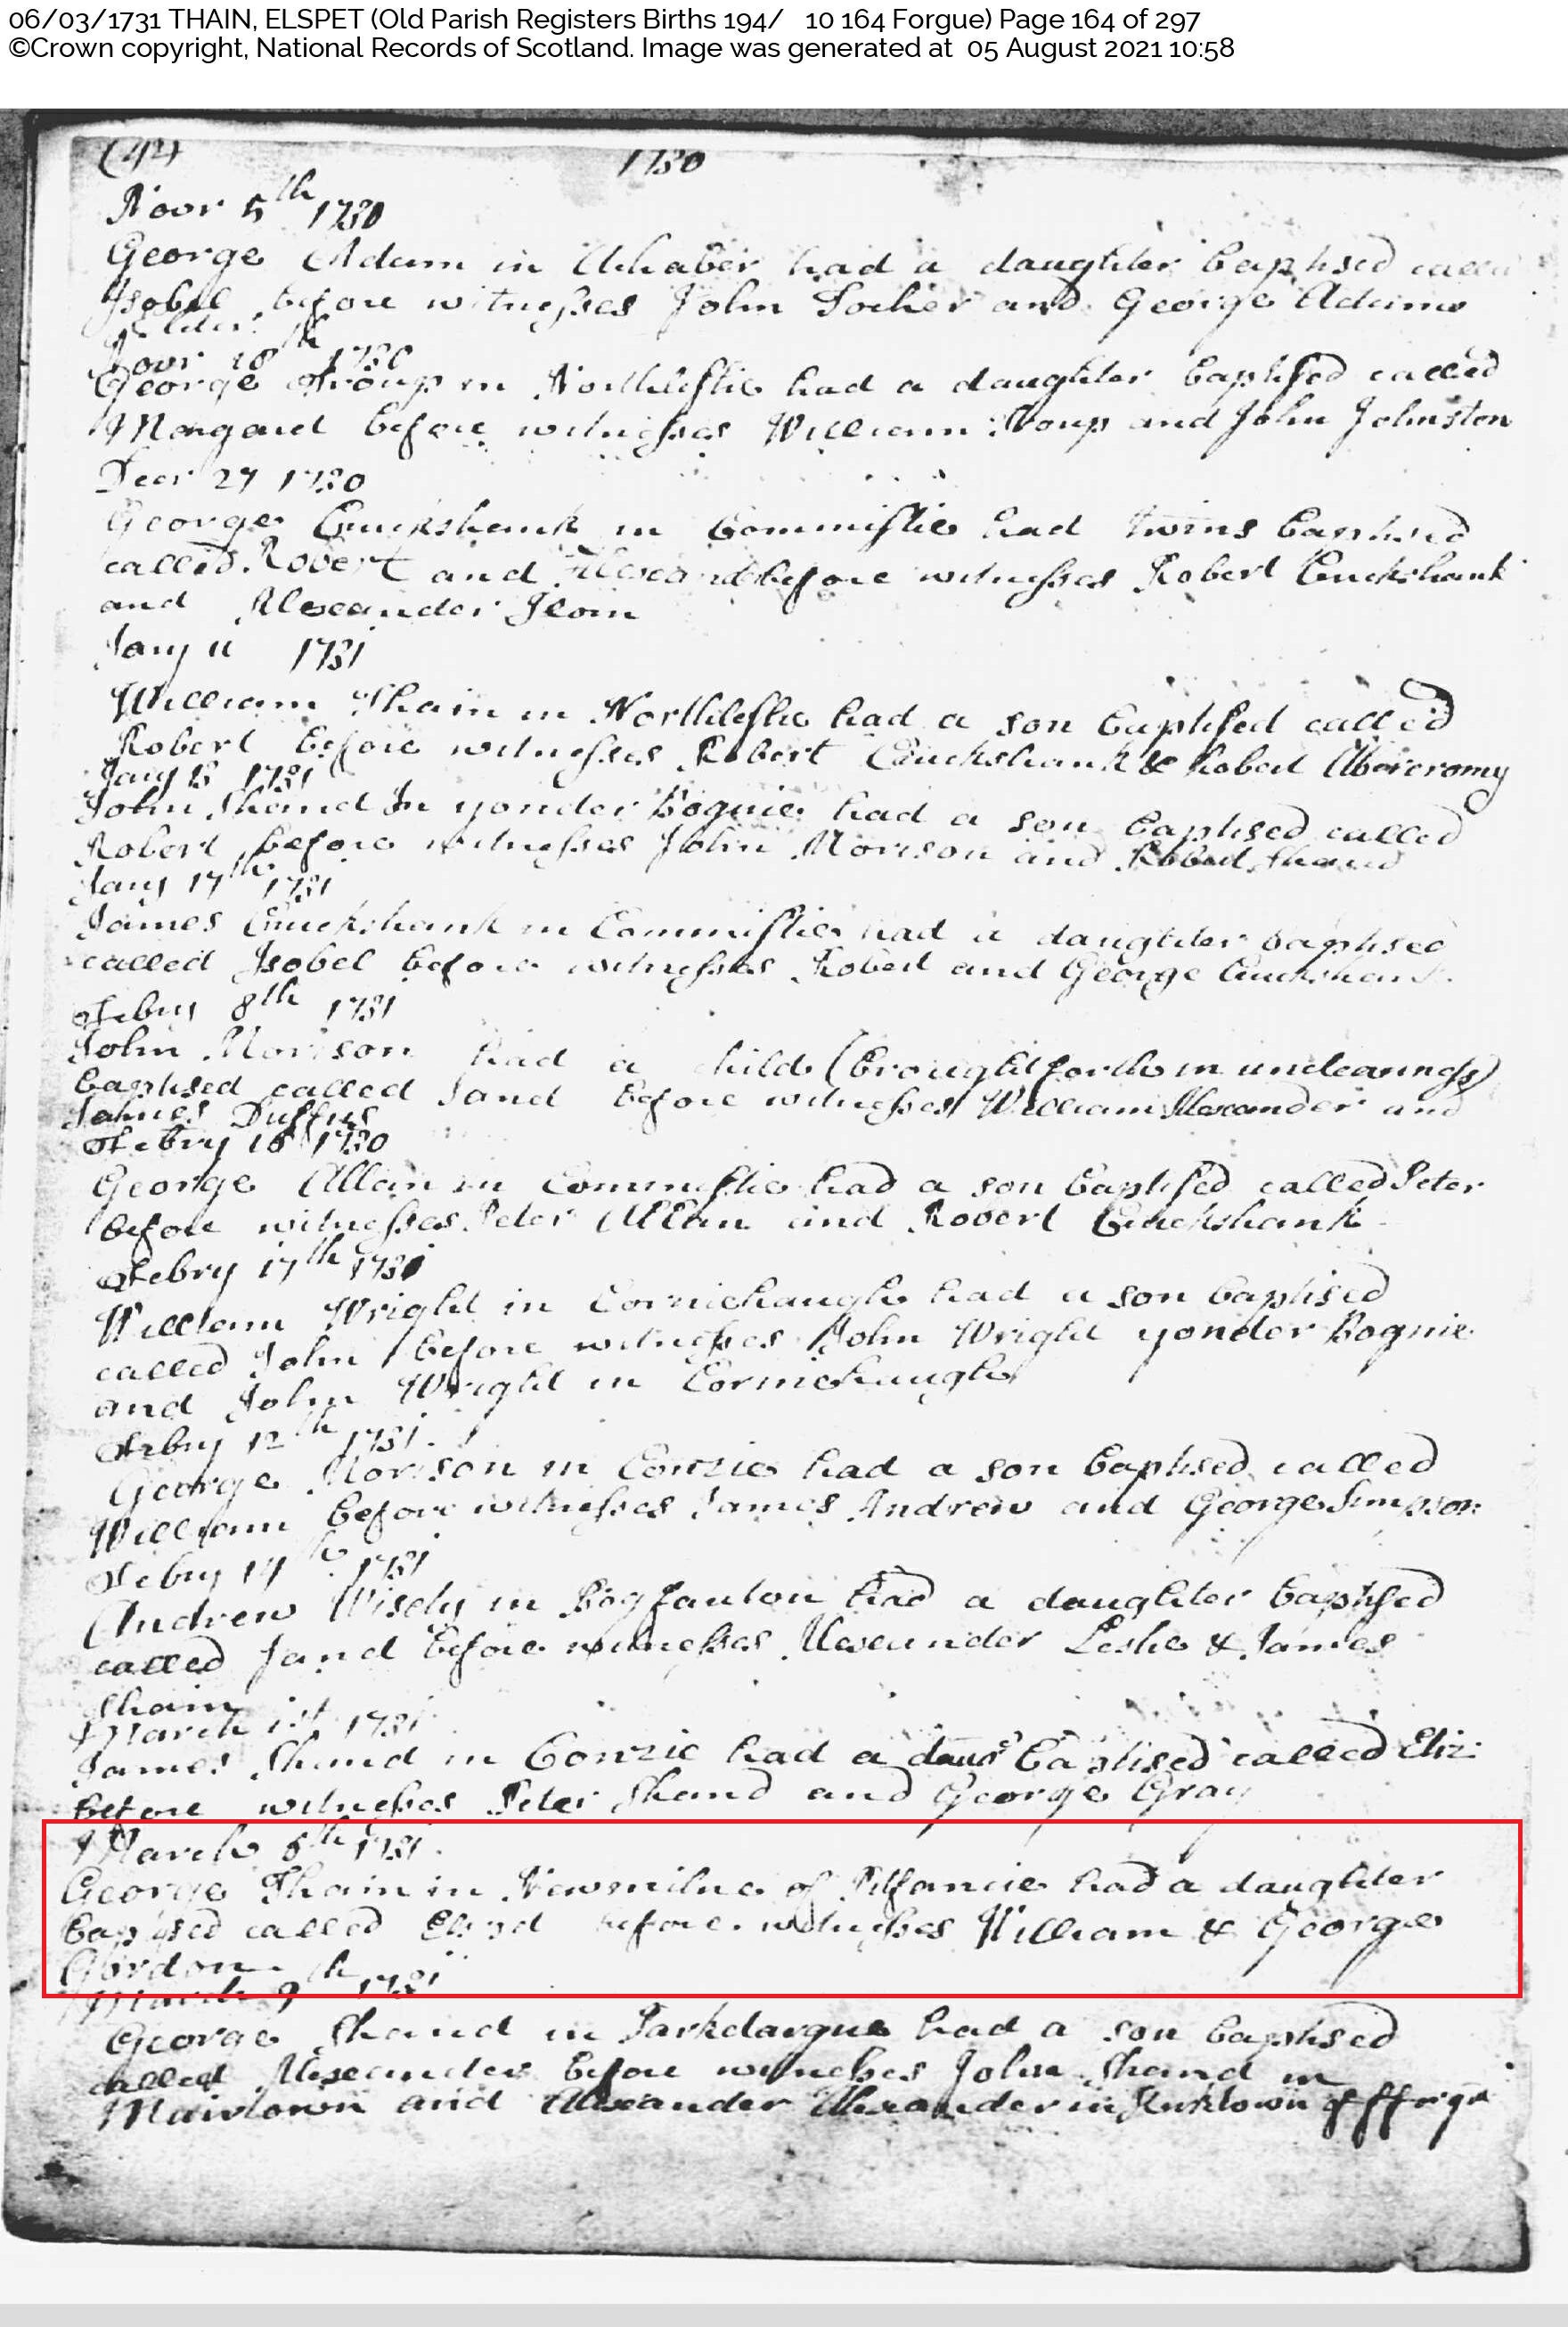 06/03/1731 THAIN, ELSPET (Old Parish Registers Births 194/ 10 164 Forgue) Page 164 of 297
©Crown copyright, National Records of Scotland. Image was generated at 05 August 2021 10:58
1730
Novr 5th 1730
George Adam in had a daughter baptised called
Isobel before witnesses John and George Adams
Elder
Novr 18th 1730
George Troup in had a daughter baptised called
Margaret before witnesses William Troup and John Johnston
Decr 27 1730
George Cruickshank in Commistie had twins baptised
called Robert and before witnesses Robert Cruckshank
and Alexander
Jany 11 1731
William Thain in had a son baptised called
Robert before witnesses Robert Cruckshank & Robert Abercromy
Jany 1731
John Shand In yonder Bognie had a son baptised called
Robert before witnesses John Morison and Robert Shand
Jany 17th 1731
James Cruckshank in Commistie had a daughter baptised
called Isobel before witnesses Robert and George Cruckshank
Febry 8th 1731
John Morison had a child (brought forth in uncleanness)
baptised called before witnesses William Alexander and
James Duffus
Febry 1730
George Allan in Commistie had a son baptised called Peter
before witnesses Peter Allan and Robert Cruckshank
Febry 17th 1731
William Wright in Corniehaugh had a son baptised
called John before witnesses John Wright yonder Bognie
and John Wright in Corniehaugh
Febry 12th 1731
George Morison in Conzie had a son baptised called
William before witnesses James Andrew and George Simpson
Febry 1731
Andrew Wisely in had a daughter baptised
called before witnesses Alexander Leslie & James
Thain
March 1st 1731
James Shand in Conzie had a baptised called Eliz:
before witnesses Peter Shand and George Gray
March 1731
George Thain in Newmilne of had a daughter
baptised called before witnesses William & George
Gordon
March 9th 1731
George Shand in Parkdargue had a son baptised
called Alexander before witnesses John Shand in
and Alexander Alexander in Kirktown of